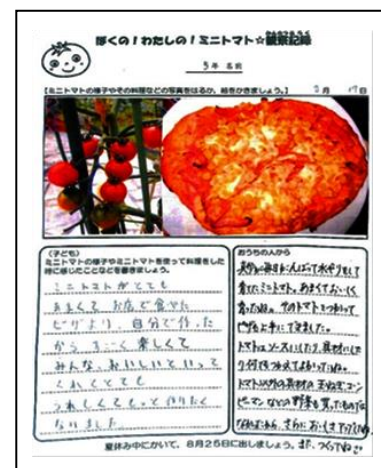 ぼくの！わたしの！ミニトマト☆観察記録
5年 名前
【ミニトマトの様子やその料理などの写真をはるか、絵をかきましょう。】 月 17日
〈子ども〉
ミニトマトの様子やミニトマトを使って料理をした
時に感じたことなどを書きましょう。
ミニトマトがとても
あまくて お店で食べた
ピザより、自分で作った
から すごく 楽しくて
みんな、おいしいといって
くれてとても
うれしくてもっと作りたく
なりました
おうちの人から
毎日 がんばって水やりをして
育てたミニトマト。あまくておいしく
そのトマトをつかって
ピザも上手にできました。
トマトはソースにしたり、具材にした
トマト以外の具材の玉ねぎ、コーン
ピーマンなどの野菜も
さらに おいしさ
夏休み中にかいて、8月25日に出しましょう。また、つくってね